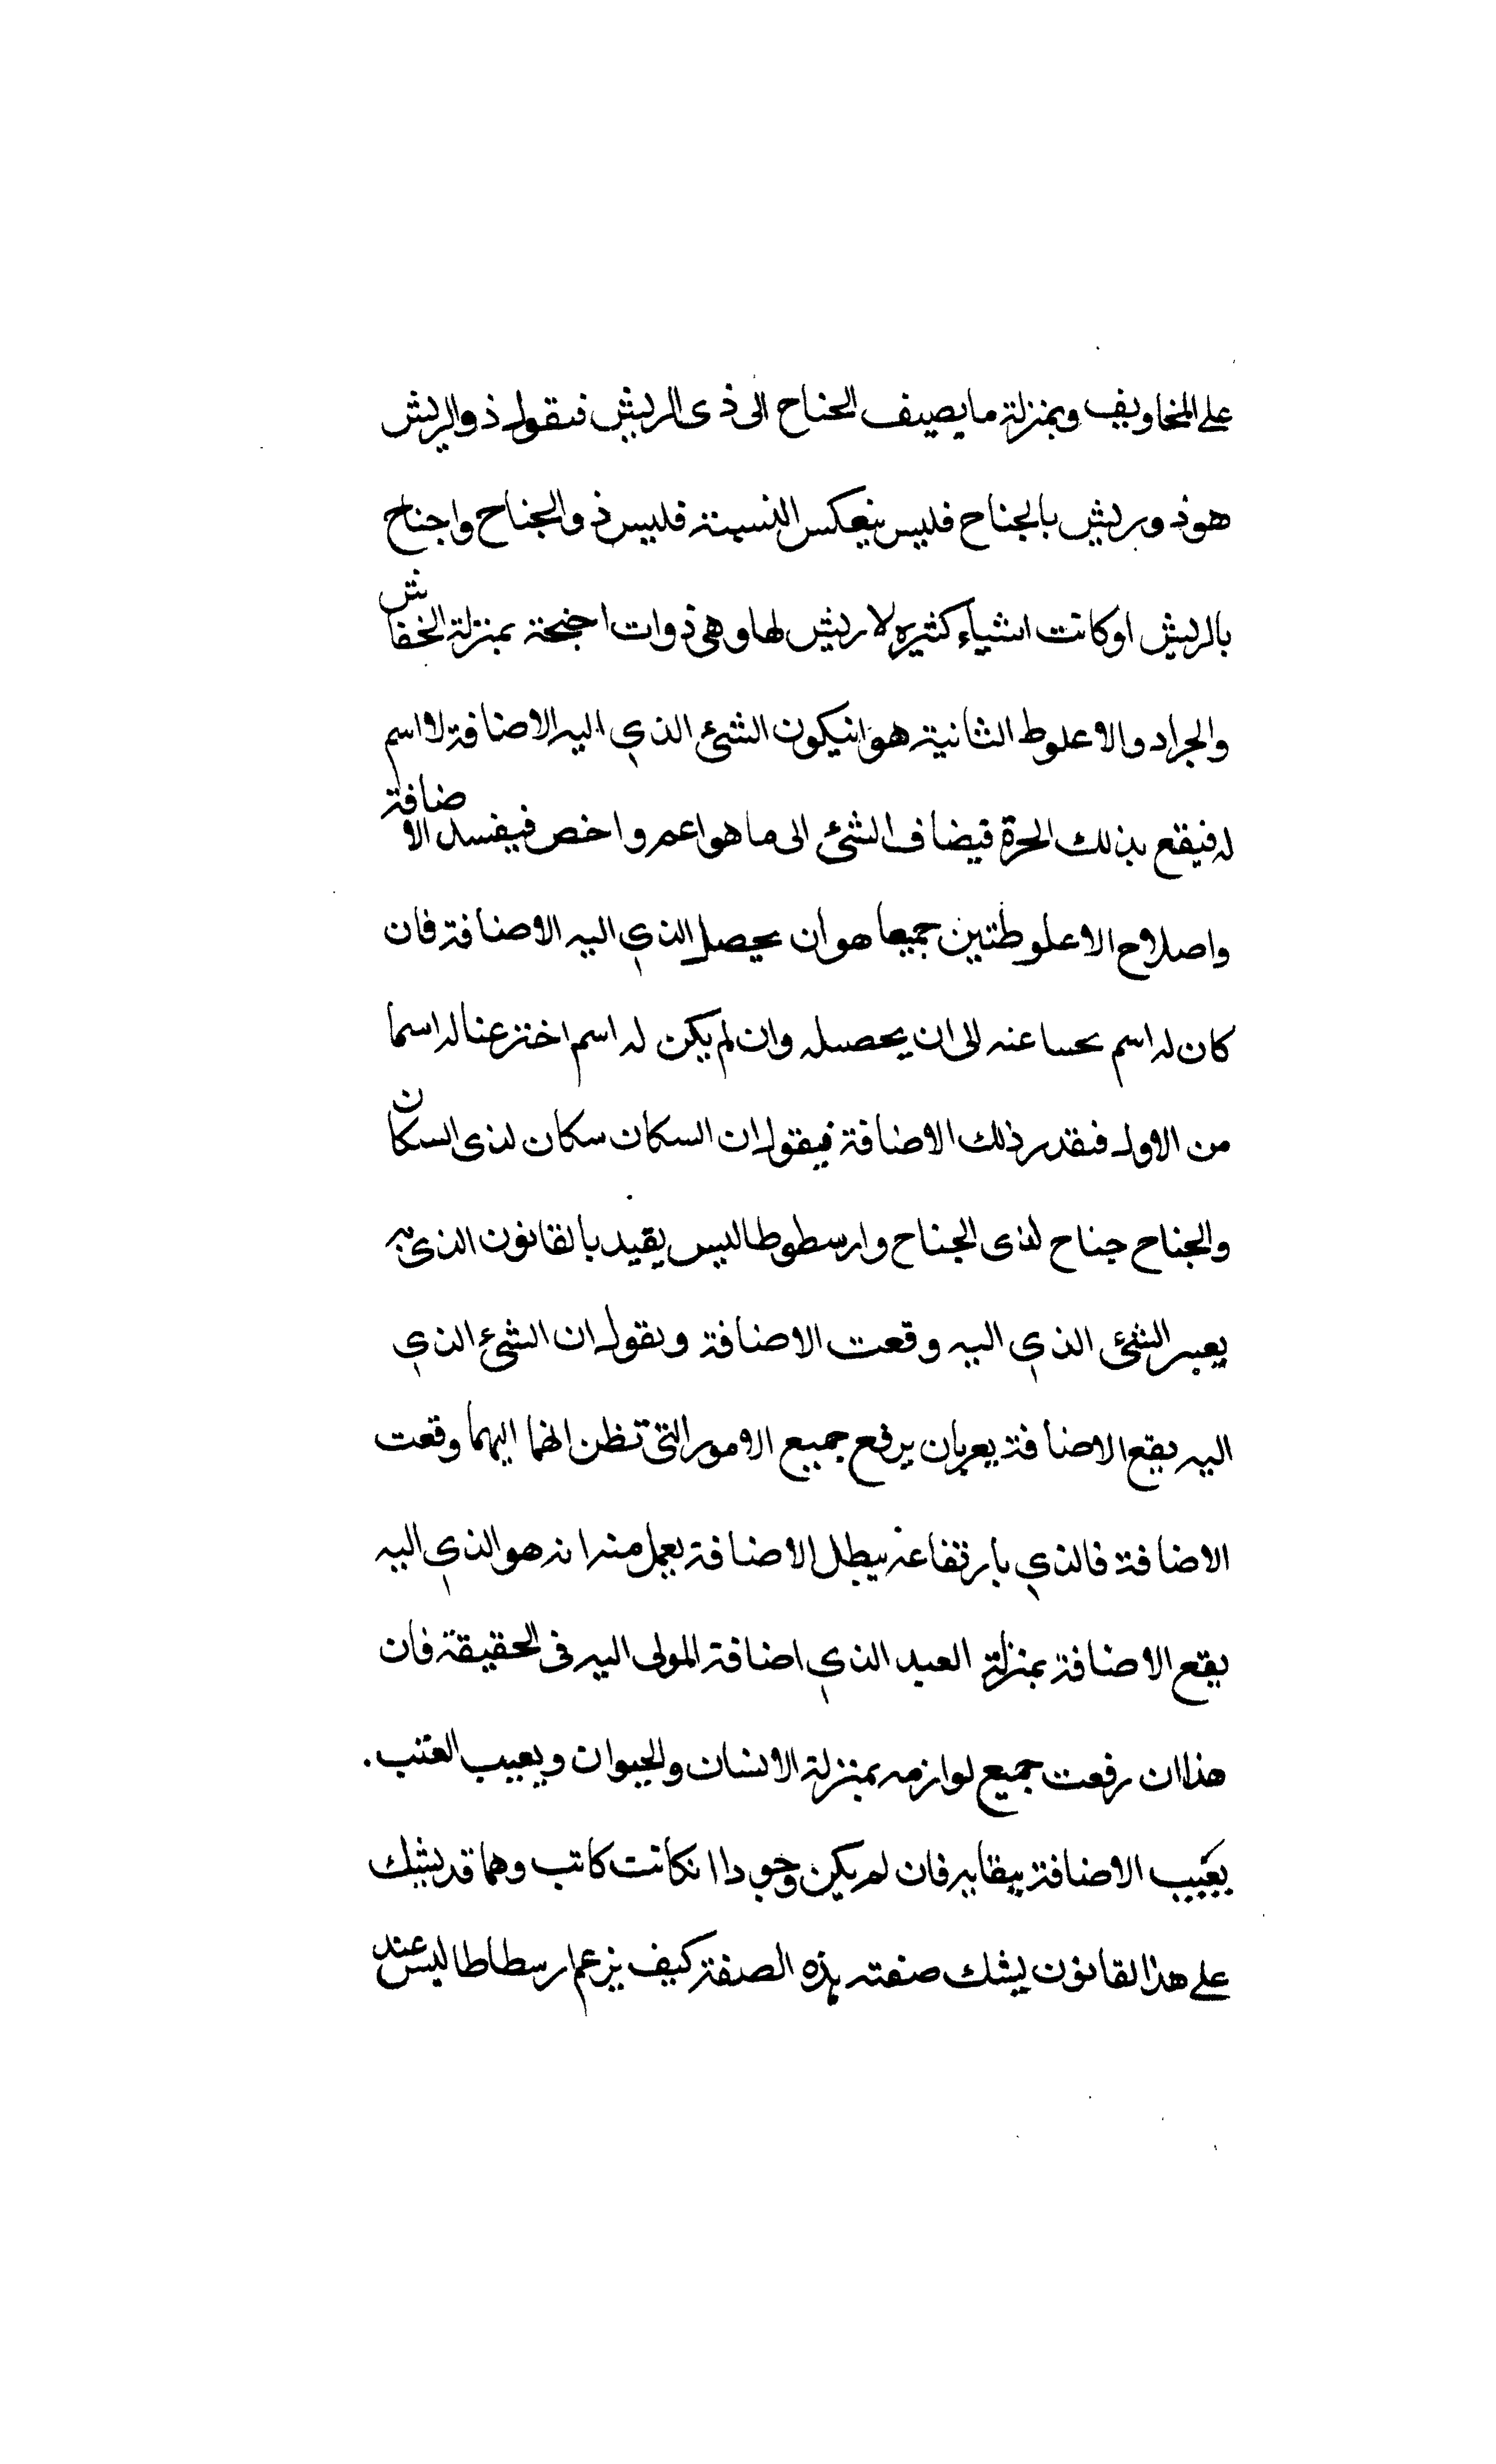 على المخاويف وبمنزلة ما يصيف الجناح الى ذى الريش فيقول ذو الريش
هو ذو ريش بالجناح فليس ينعكس النسبة فليس ذو الجناح واجناح
بالريش اوكانت اشياء كثيره لا ريش لها وهى ذوات اجنحة بمنزلة الخفاش
والجراد والاغلوط الثانية هو انيكون الشئ الذي اليه الاضافة لا اسم
له فيقع بذلك الحرة فيضاف الشئ الى ما هو اعم واخص فيفسد الاضافة
واصلاح الاغلوطتين جميعا هو ان يحصل الذي اليه الاضافة فان
كان له اسم عنه الى ان يحصله وان لم يكن له اسم اخترعنا له اسما
من الاول فنقدر ذلك الاضافة فيقول ان السكان سكان لذى السكان
والجناح جناح لذى الجناح وارسطوطاليس يقيد بالقانون الذى به
يعبر الشئ الذي اليه وقعت الاضافة ويقول ان الشئ الذي
اليه يقع الاضافة يعبر بان يرفع جميع الامور التى تظن انهما اليهما وقعت
الاضافة فالذي بارتفاعه يبطل الاضافة يعمل منه انه هو الذي اليه
يقع الاضافة بمنزلة العبد الذي اضافة المولى اليه فى الحقيقة فان
هذا ان رفعت جميع لوازمه بمنزلة الانسان والحيوان ويعيب العتب.
الاضافة فان لم يكن وجودا انكانت كاتب وهما قد يشك
على هذا القانون يشك صفته بهذه الصفة كيف يزعم ارسطاطاليس عند